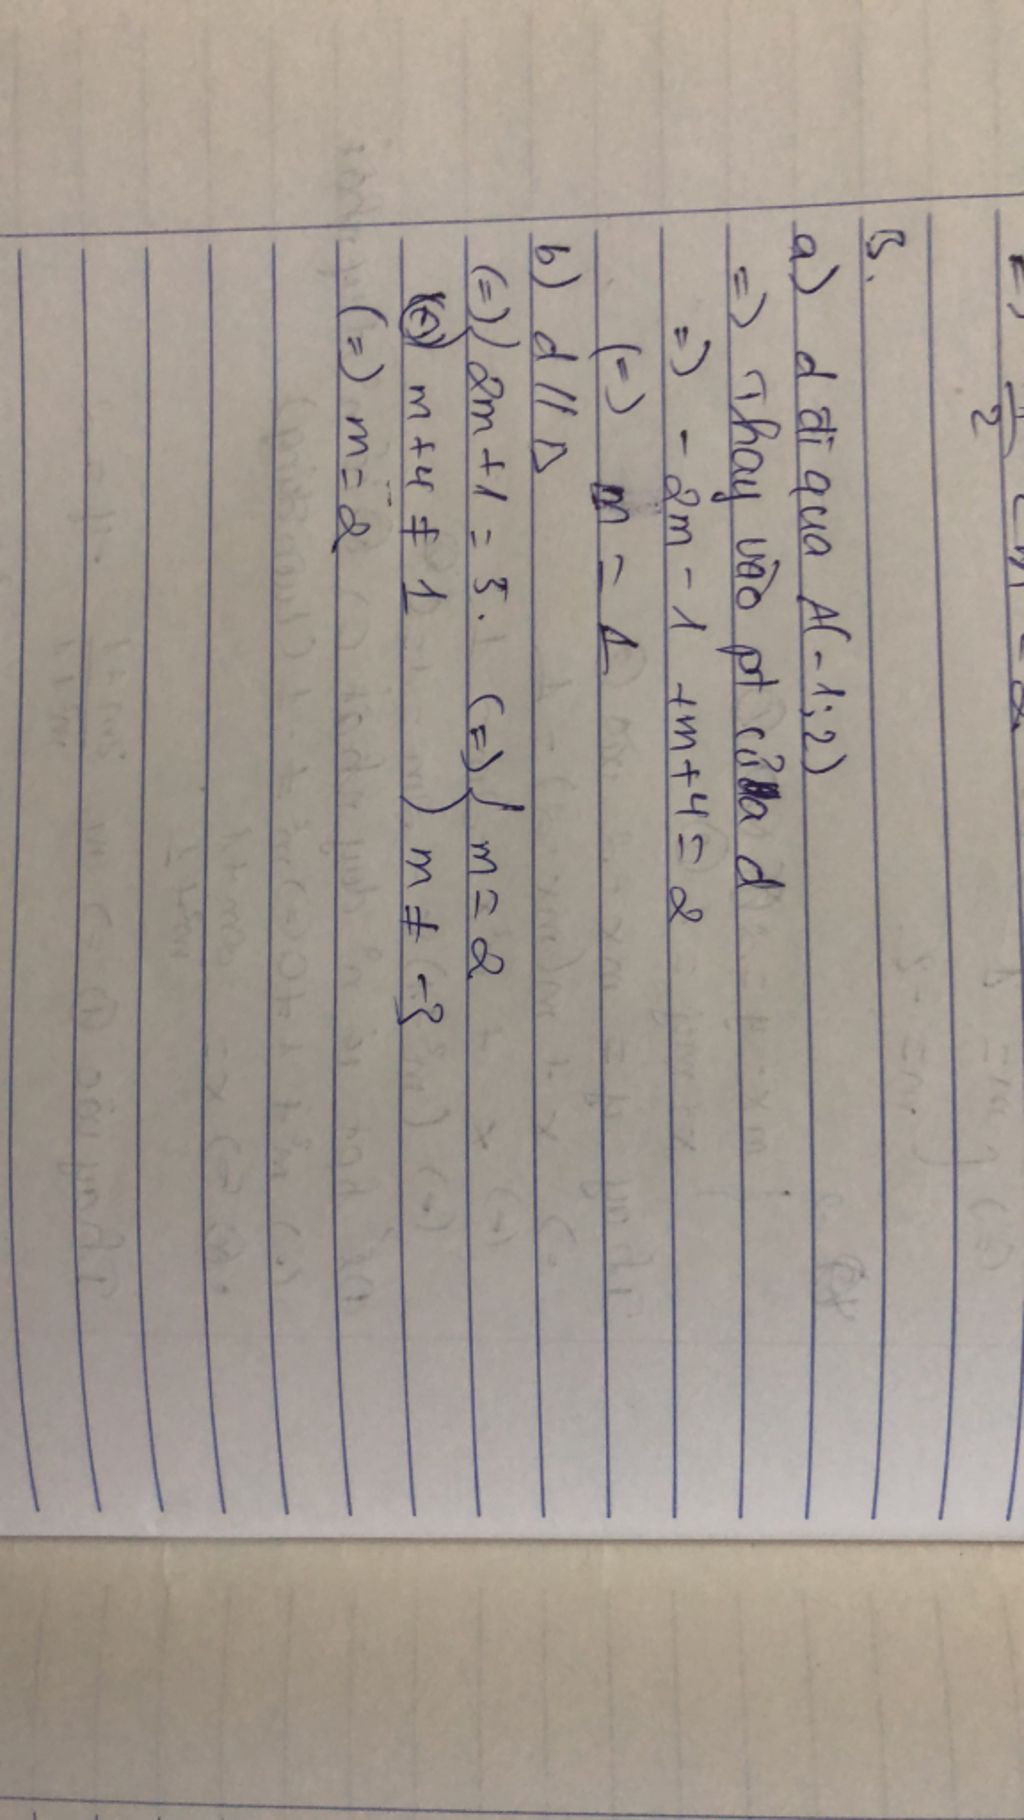 B.
a) d đi qua A(-1;2)
=) Thay vào pt của d
=) -2m - 1 +m+4 = 2
(=) m = 1
b) d // Δ
(=) { 2m+1 = 5. (=) { m = 2
m+4 ≠ 1 m ≠ -3
(=) m = 2